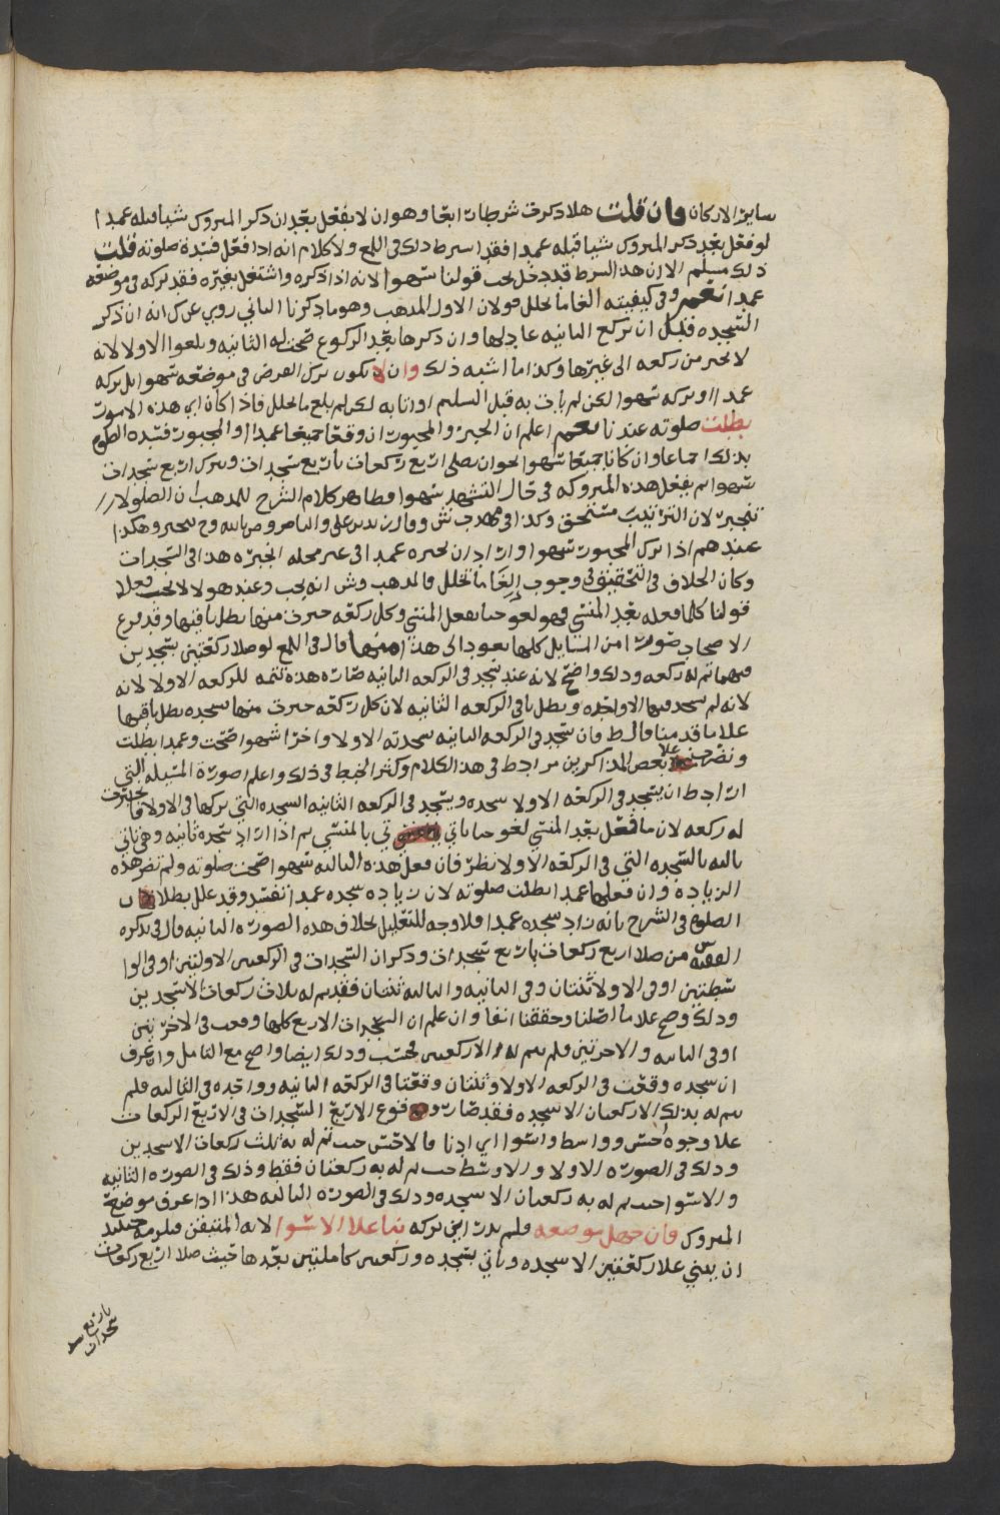 ساير الاركان فان قلت هلا ذكرت شرطا رابعا وهو ان لا يفعل بعد ان ذكر المتروك شيا قبله عمدا
لو فعل بعد ذكر المتروك شيا قبله عمدا فقد اشرط ذلك في اللمع ولا كلام انه اذا فعل فسده صلوته قلت
ذلك مسلم الا ان هذا الشرط قد دخل تحت قولنا سهوا لانه اذا ذكره واشتغل بغيره فقد تركه في موضعه
عمدا نعم وفي كيفيته الغا ما تخلل قولان الاول المذهب وهو ما ذكرنا الثاني روي عن ك انه ان ذكر
السجده قبل ان يركع الثانيه عاد لها وان ذكرها بعد الركوع صحت له الثانيه ويلغوا الاولا لانه
لا تجبر من ركعه الى غيرها وكذا ما اشبه ذلك وان لا يكون ترك الفرض في موضعه سهوا بل تركه
عمدا او تركه سهوا لكن لم يات به قبل التسليم او اتا به لكن لم يلغ ما تخلل فاذا كان اي هذه الامور
بطلت صلوته عندنا نعم اعلم ان الجبر والمجبور ان وقعا جميعا عمدا او المجبور فسده الصلوه
بذلك اجماعا وان كانا جميعا سهوا نحو ان يصلي اربع ركعات باربع سجدات وترك اربع سجدات
سهوا ثم يفعل هذه المتروكه في حال التشهد سهوا فظاهر كلام الشرح للمذهب ان الصلوه لا
تنجبر لان الترتيب مستحق وكذا في
عندهم اذا ترك المجبور سهوا واراد ان يجبره عمدا في غير محله الجبره هذا في السجدات
وكان الخلاف في التحقيق في وجوب الغا ما تخلل فالمذهب وش انه يجب وعند هولا لا يجب فعلا
قولنا كلما فعله بعد المنسي فهو لغو حتا يفعل المنسي وكل ركعه جبرت منها بطل باقيها وقد فرع
الاصحاب صورا من المسايل كلها تعود الى هذا منها قال في اللمع لو صلا ركعتين بسجدتين
فيهما تم له ركعه وذلك واضح لانه عند سجد في الركعه الثانيه صارت هذه تتمه للركعه الاولا لانه
لانه لم يسجد فيها الا واحده وبطل باقي الركعه الثانيه لان كل ركعه جبرت منها سجده بطل باقيها
علا ما قدمنا قال ط فان سجد في الركعه الثانيه سجدته الاولا واخرا سهوا صحت وعمدا بطلت
بعض المذاكرين مراد ط في هذا الكلام وكثر الخبط في ذلك واعلم ا صورة المسله التي
اراد ط ان يسجد في الركعه الاولا سجده ويسجد في الركعه الثانيه السجده التي تركها في الاولا فانجبرت
له ركعه لان ما فعل بعد المنسي لغو حتا ياتي بالمنسي ثم اذا اراد سجده ثانيه وهي ثاني
ثالثه بالسجده التي في الركعه الاولا نظر فان فعل هذه الثالثه سهوا صحت صلوته ولم تضر هذه
الزياده وان فعلها عمدا بطلت صلوته لان زياده سجده عمدا تفسد وقد علل بطلان
الصلوه في الشرح بانه زاد سجده عمدا فلا وجه للتعليل بخلاف هذه الصوره الثانيه قال في تذكره
من صلا اربع ركعات باربع سجدات وذكر ان السجدات في الركعتين الاولتين او في الوا
سطتين او في الاولا ثنتان وفي الثانيه والثالثه ثنتان فقد تم له ثلاث ركعات الا سجدتين
وذلك وضح علا ما اصلنا وحققنا انفا وان علم ان السجدات الاربع كلها وقعت في الاخرتين
او في الثانيه والاخرتين فلم يتم له الا ركعتين فحسب وذلك ايضا واضح مع التامل وان عرف
ان سجده وقعت في الركعه الاولا وثنتان وقعتا في الركعه الثانيه وواحده في الثالثه فلم
يتم له بذلك الا ركعتان الا سجده فقد صار وقوع الاربع السجدات في الاربع الركعات
علا وجوه احسن وواسط واسوا اي ادنا فالاحسن حيث تم له به ثلث ركعات الا سجدتين
وذلك في الصوره الاولا والاوسط حيث تم له به ركعتان فقط وذلك في الصوره الثانيه
والاسوا حيث تم له به ركعتان الا سجده وذلك في الصوره الثالثه هذا اذا عرف موضع
المتروك فان جهل موضعه فلم يدر اين تركه بنا علا الاسوا لانه المتيقن فيلزمه حينيذ
ان يبني علا ركعتين الا سجده وياتي بسجده وركعتين كاملتين بعدها حيث صلا اربع ركعات
باربع
سجدات